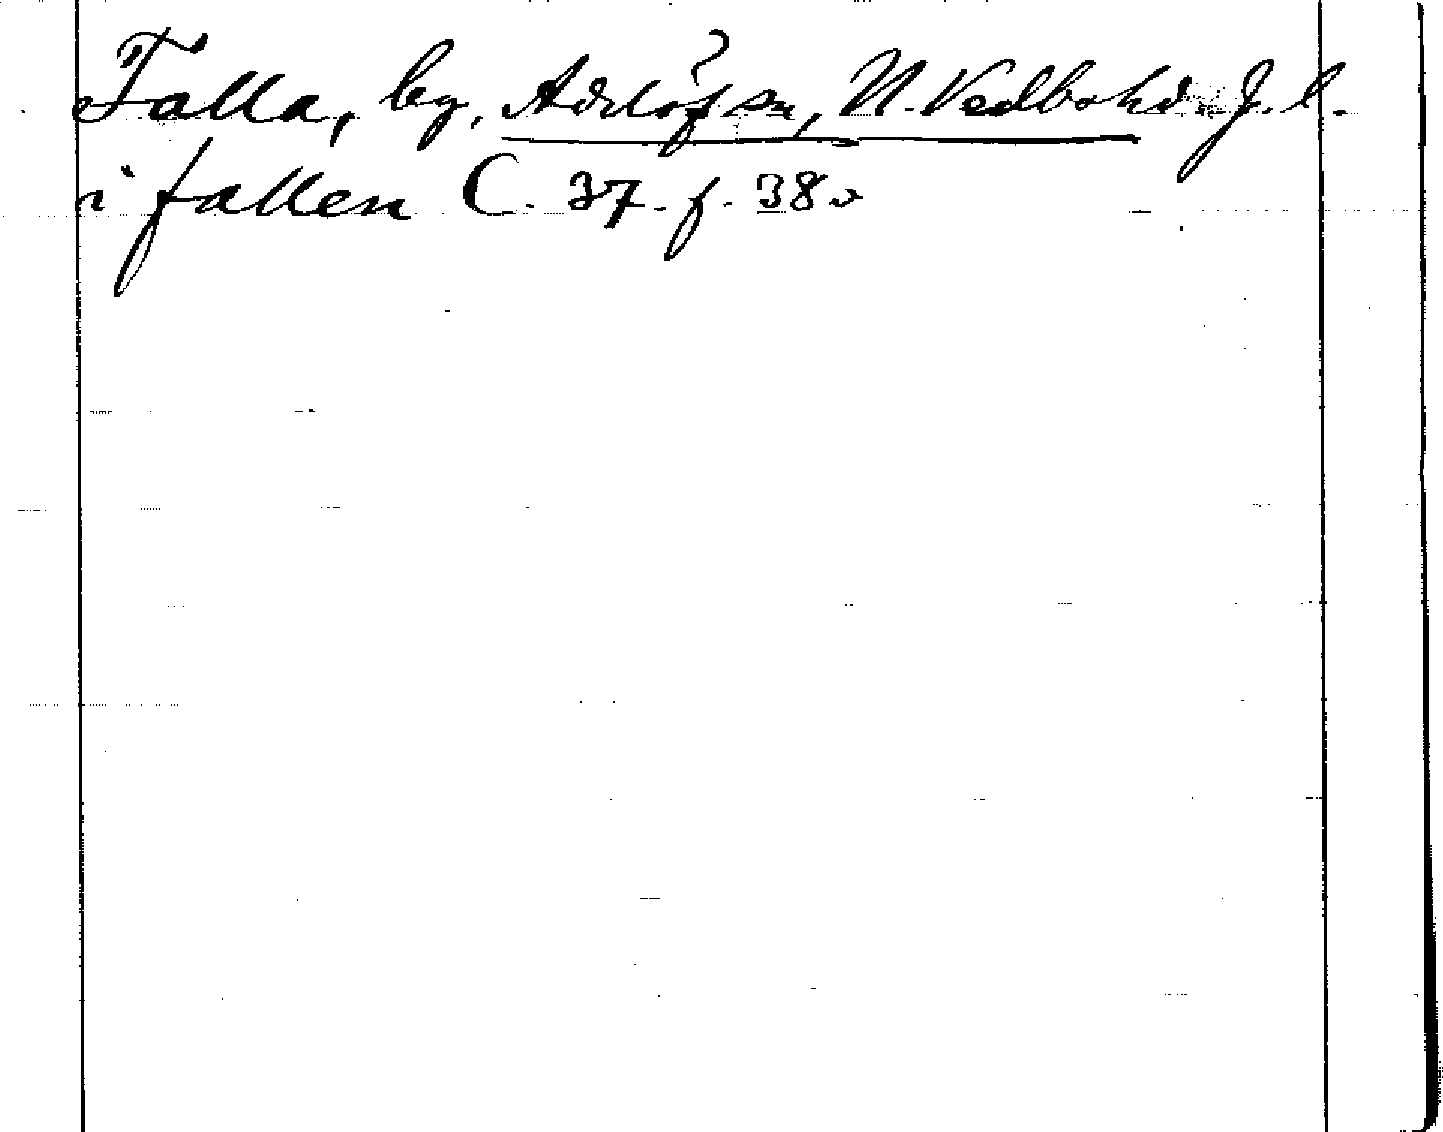 Falla, by, Adelöfsn, N. Vedbo hd. J. l.
i fallen C. 37. f. 38 v